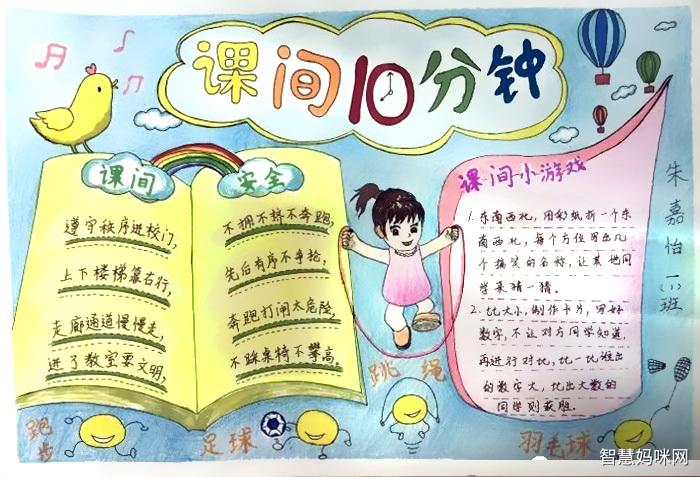 课间10分钟
课间
遵守秩序进校门,
上下楼梯靠右行,
走廊通道慢慢走,
进了教室要文明,
安全
不拥不挤不奔跑,
先后有序不争抢,
奔跑打闹太危险,
不踩桌椅不攀高。
课间小游戏
1. 东南西北,用彩纸折一个东
南西北,每个方位写出几
个搞笑的名称,让其他同
学来猜一猜。
2. 比大小,制作卡片,写好
数字,不让对方同学知道,
再进行对比,比一比谁出
的数字大,比出大数的
同学则获胜。
朱嘉怡 一(1)班
跳绳
跑步
足球
羽毛球
智慧妈咪网